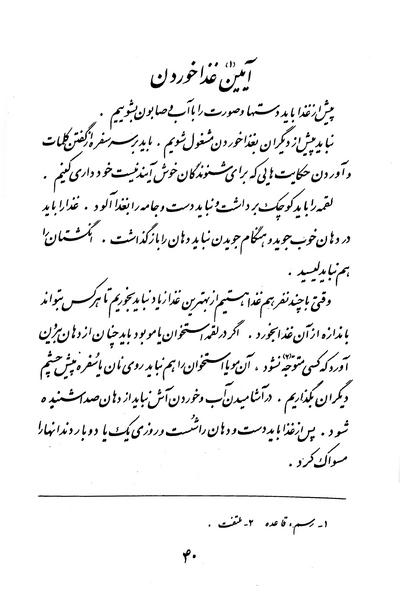 آیین (۱) غذا خوردن
پیش از غذا باید دستها و صورت را با آب و صابون بشوییم .
نباید پیش از دیگران بغذا خوردن مشغول شویم . باید بر سر سفره از گفتن کلمات
و آوردن حکایت هایی که برای شنوندگان خوش آیند نیست خودداری کنیم .
لقمه را باید کوچک برداشت و نباید دست و جامه را بغذا آلود . غذا را باید
در دهان خوب جوید و هنگام جویدن نباید دهان را باز گذاشت . انگشتان را
هم نباید لیسید .
وقتی با چند نفر هم غذا هستیم از بهترین غذا زیاد نباید بخوریم تا هر کس بتواند
باندازه از آن غذا بخورد . اگر در لقمه استخوان یا مو بود باید چنان از دهان بیرون
آورد که کسی متوجه (۲) نشود . آن مو یا استخوان را هم نباید روی نان یا سفره پیش چشم
دیگران بگذاریم . در آشامیدن آب و خوردن آش نباید از دهان صدا شنیده
شود . پس از غذا باید دست و دهان را شست و روزی یک یا دو بار دندانها را
مسواک کرد .
۱ـ رسم، قاعده ۲ـ ملتفت .
۴۰